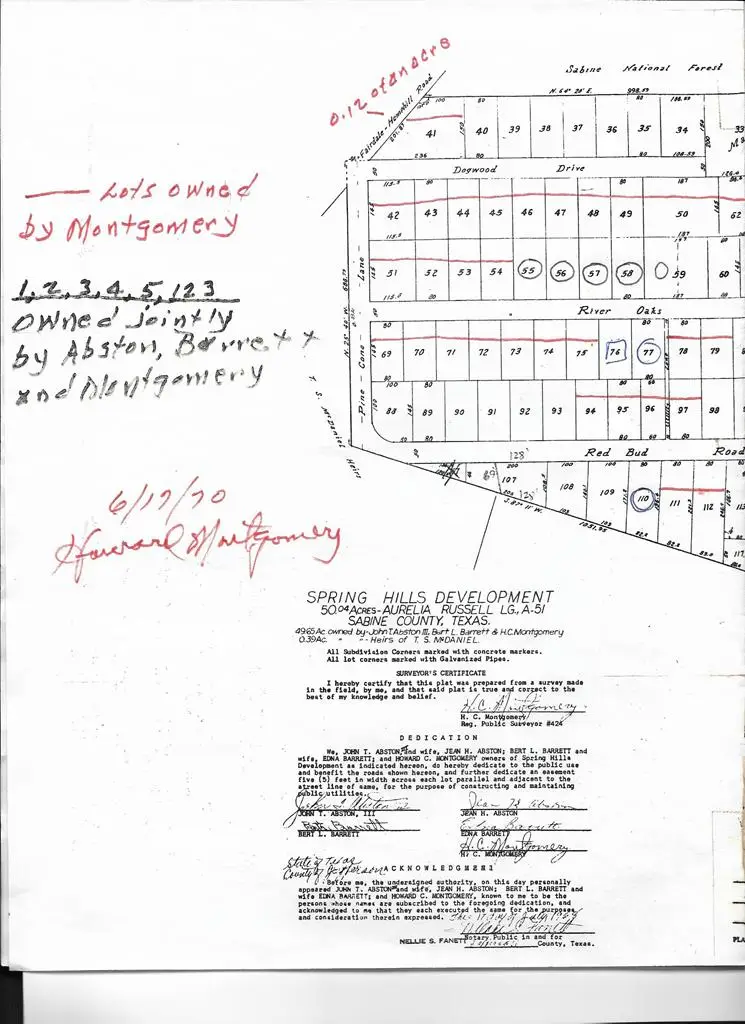 0.12 of an acre
Sabine National Forest
N. 64° 20' E. 998.59
Fairdale-Hemphill Road
100 80 80
41 40 39 38 37 36 35 34 33
236 80 80 108.59
Dogwood Drive
115.5 80 80 187
42 43 44 45 46 47 48 49 50 62
115.5 187
51 52 53 54 55 56 57 58 59 60
115.5 80 80 187
River Oaks
80 80
69 70 71 72 73 74 75 76 77 78 79
100 80
88 89 90 91 92 93 94 95 96 97 98
80 80 60 80
Pine Cone Lane
T. S. McDaniel Heirs
Red Bud Road
128'
200 100 100 80 80 80
107 108 109 110 111 112
S. 87° 11' W.
1051.95
82.0 82.0
Lots owned
by Montgomery
1, 2, 3, 4, 5, 123
owned jointly
by Abston, Barrett
and Montgomery
6/17/70
Howard Montgomery
SPRING HILLS DEVELOPMENT
50.04 ACRES-AURELIA RUSSELL LG., A-51
SABINE COUNTY, TEXAS.
49.65 Ac. owned by-John T. Abston III, Burt L. Barrett & H.C. Montgomery
0.39 Ac. " "-Heirs of T. S. McDANIEL.
All Subdivision Corners marked with concrete markers.
All lot corners marked with Galvanized Pipes.
SURVEYOR'S CERTIFICATE
I hereby certify that this plat was prepared from a survey made
in the field, by me, and that said plat is true and correct to the
best of my knowledge and belief.
H. C. Montgomery
H. C. Montgomery
Reg. Public Surveyor #424
DEDICATION
We, JOHN T. ABSTON, and wife, JEAN H. ABSTON; BERT L. BARRETT and
wife, EDNA BARRETT; and HOWARD C. MONTGOMERY owners of Spring Hills
Development as indicated hereon, do hereby dedicate to the public use
and benefit the roads shown hereon, and further dedicate an easement
five (5) feet in width across each lot parallel and adjacent to the
street line of same, for the purpose of constructing and maintaining
public utilities.
JOHN T. ABSTON, III
Jean H. Abston
JEAN H. ABSTON
Bert Barrett
BERT L. BARRETT
Edna Barrett
EDNA BARRETT
H. C. Montgomery
H. C. MONTGOMERY
State of Texas
County of Jefferson
ACKNOWLEDGMENT
Before me, the undersigned authority, on this day personally
appeared JOHN T. ABSTON and wife, JEAN H. ABSTON; BERT L. BARRETT and
wife EDNA BARRETT; and HOWARD C. MONTGOMERY, known to me to be the
persons whose names are subscribed to the foregoing dedication, and
acknowledged to me that they each executed the same for the purposes
and consideration therein expressed.
NELLIE S. FANETT
Notary Public in and for
County, Texas.